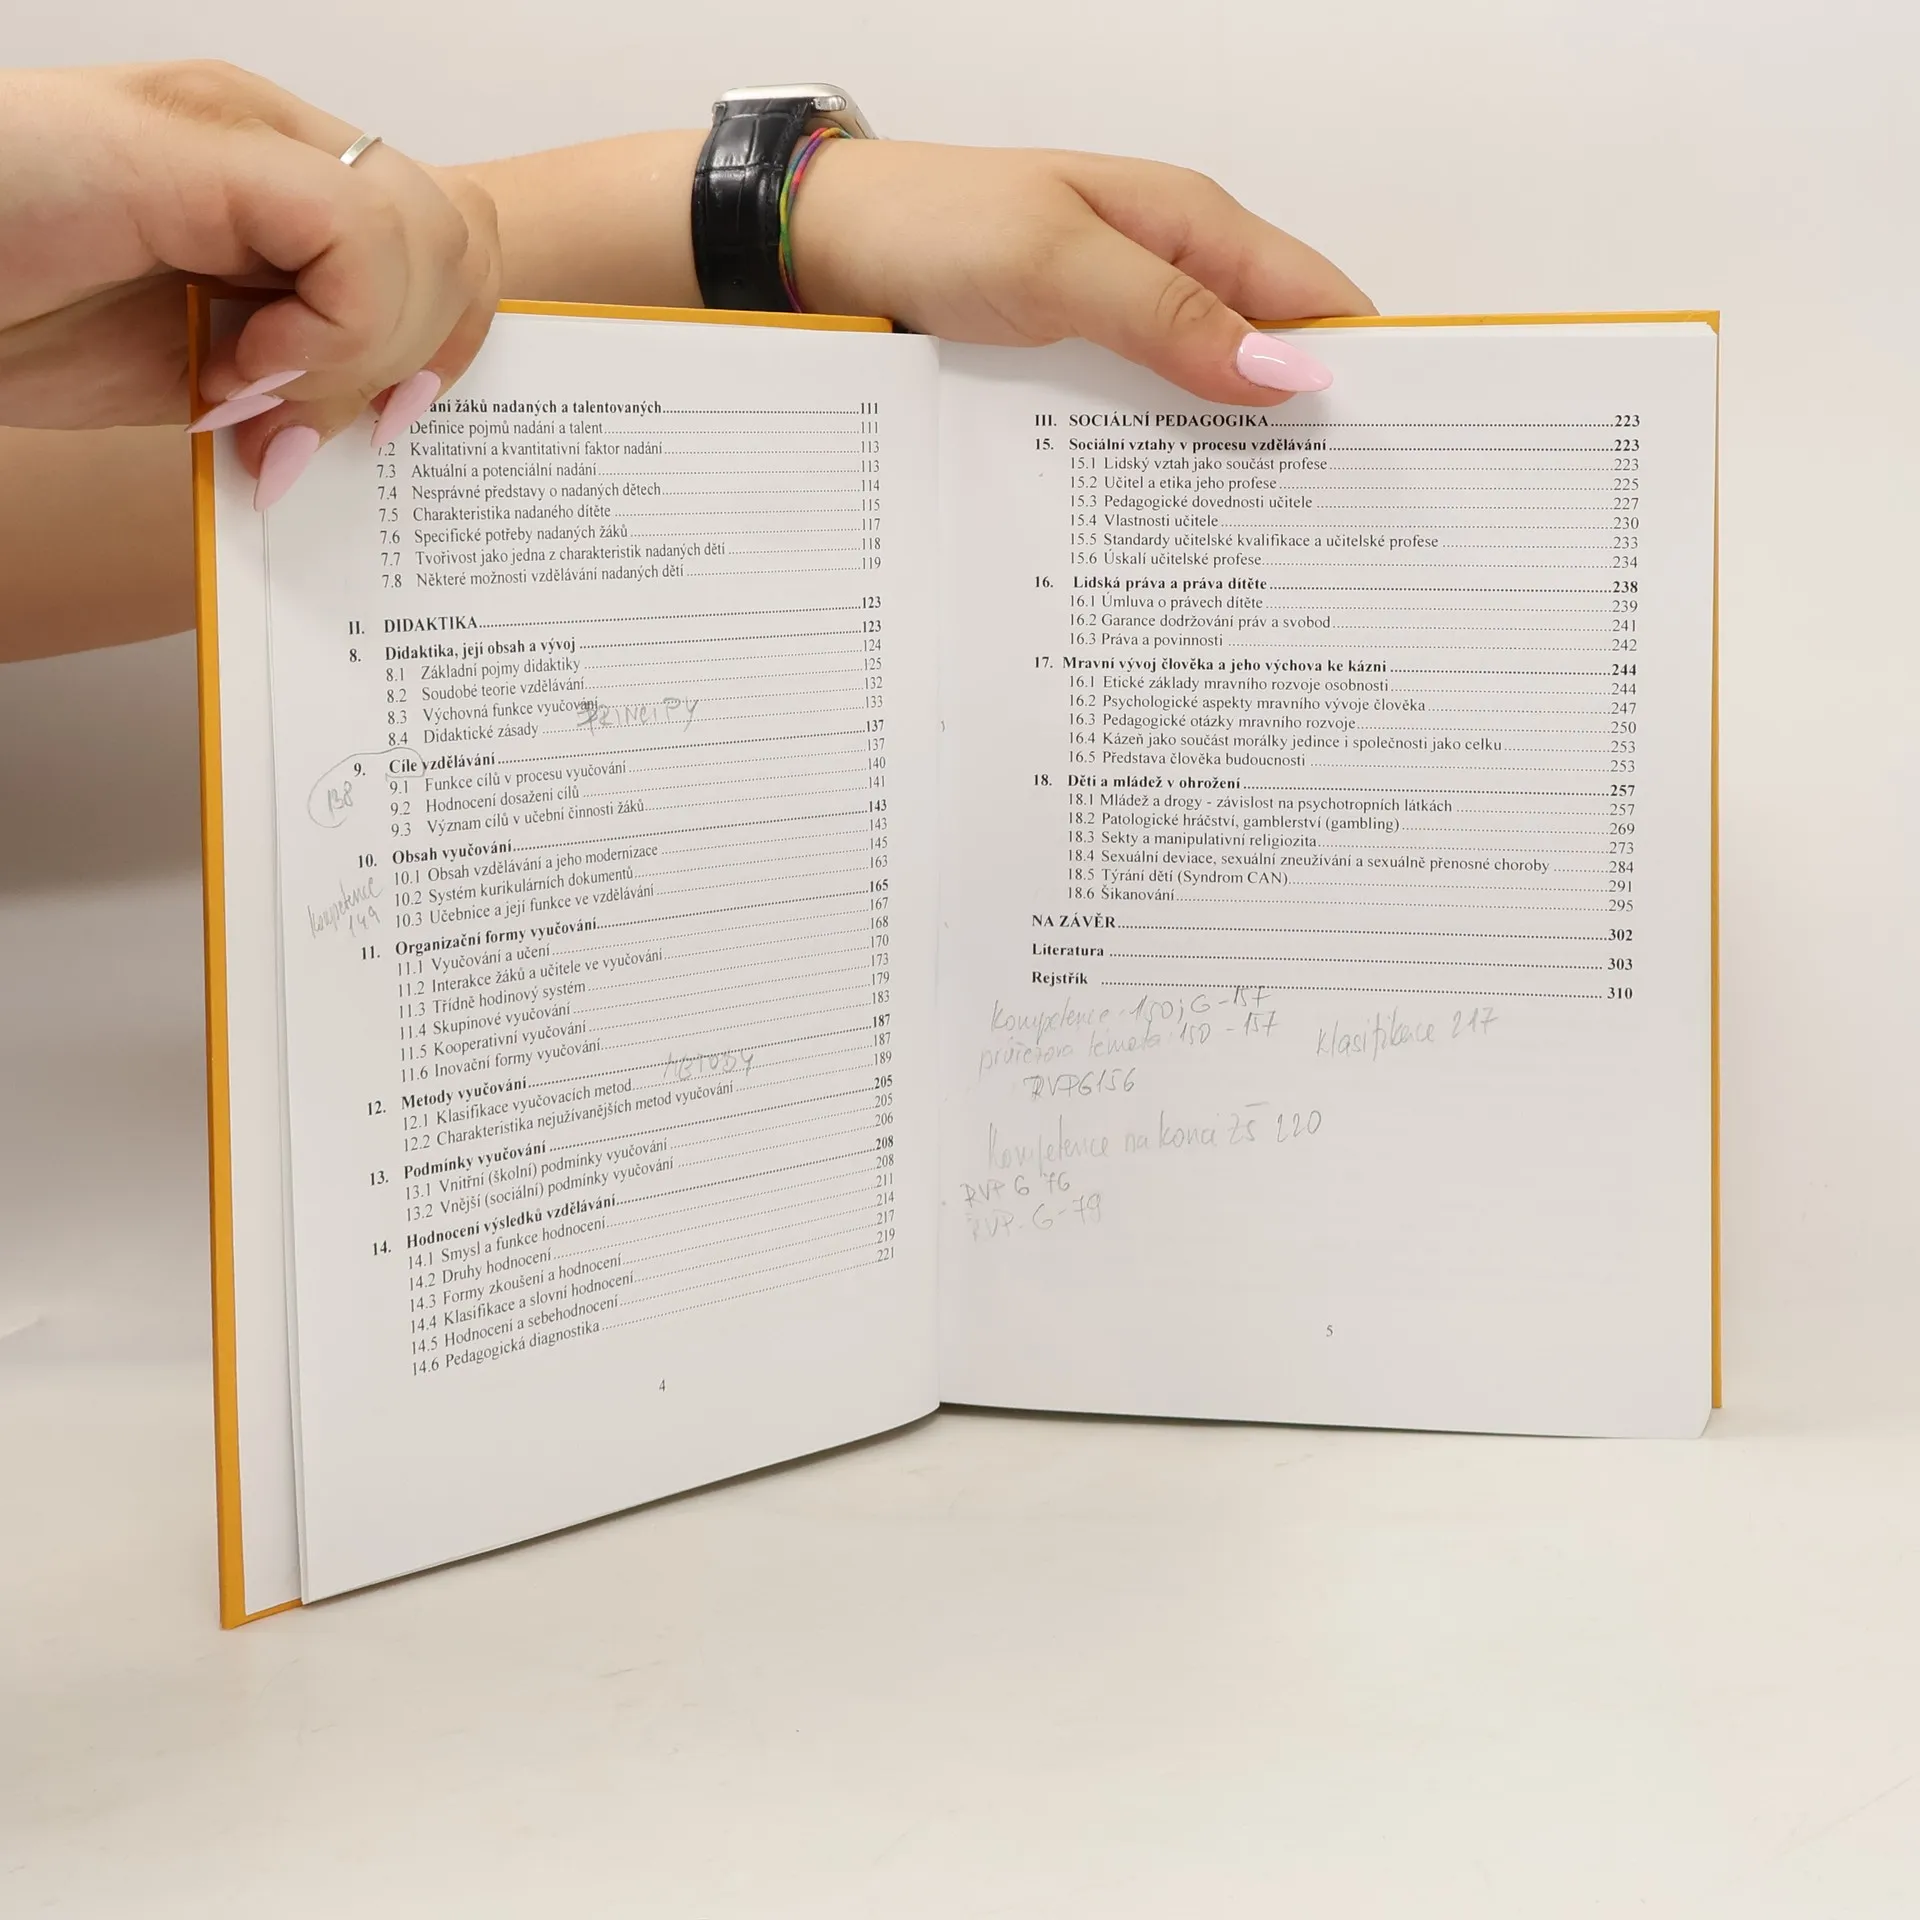 ání žáků nadaných a talentovaných 111
Definice pojmů nadání a talent 111
7.2 Kvalitativní a kvantitativní faktor nadání 113
7.3 Aktuální a potenciální nadání 113
7.4 Nesprávné představy o nadaných dětech 114
7.5 Charakteristika nadaného dítěte 115
7.6 Specifické potřeby nadaných žáků 117
7.7 Tvořivost jako jedna z charakteristik nadaných dětí 118
7.8 Některé možnosti vzdělávání nadaných dětí 119
II. DIDAKTIKA 123
8. Didaktika, její obsah a vývoj 123
8.1 Základní pojmy didaktiky 124
8.2 Soudobé teorie vzdělávání 125
8.3 Výchovná funkce vyučování 132
PRINCIPY
8.4 Didaktické zásady 133
9. Cíle vzdělávání 137
138
9.1 Funkce cílů v procesu vyučování 137
9.2 Hodnocení dosažení cílů 140
9.3 Význam cílů v učební činnosti žáků 141
10. Obsah vyučování 143
10.1 Obsah vzdělávání a jeho modernizace 143
10.2 Systém kurikulárních dokumentů 145
10.3 Učebnice a její funkce ve vzdělávání 163
Kompetence
149
11. Organizační formy vyučování 165
11.1 Vyučování a učení 167
11.2 Interakce žáků a učitele ve vyučování 168
11.3 Třídně hodinový systém 170
11.4 Skupinové vyučování 173
11.5 Kooperativní vyučování 179
11.6 Inovační formy vyučování 183
12. Metody vyučování 187
METODY
12.1 Klasifikace vyučovacích metod 187
12.2 Charakteristika nejužívanějších metod vyučování 189
13. Podmínky vyučování 205
13.1 Vnitřní (školní) podmínky vyučování 205
13.2 Vnější (sociální) podmínky vyučování 206
14. Hodnocení výsledků vzdělávání 208
14.1 Smysl a funkce hodnocení 208
14.2 Druhy hodnocení 211
14.3 Formy zkoušení a hodnocení 214
14.4 Klasifikace a slovní hodnocení 217
14.5 Hodnocení a sebehodnocení 219
14.6 Pedagogická diagnostika 221
4
III. SOCIÁLNÍ PEDAGOGIKA 223
15. Sociální vztahy v procesu vzdělávání 223
15.1 Lidský vztah jako součást profese 223
15.2 Učitel a etika jeho profese 225
15.3 Pedagogické dovednosti učitele 227
15.4 Vlastnosti učitele 230
15.5 Standardy učitelské kvalifikace a učitelské profese 233
15.6 Úskalí učitelské profese 234
16. Lidská práva a práva dítěte 238
16.1 Úmluva o právech dítěte 239
16.2 Garance dodržování práv a svobod 241
16.3 Práva a povinnosti 242
17. Mravní vývoj člověka a jeho výchova ke kázni 244
16.1 Etické základy mravního rozvoje osobnosti 244
16.2 Psychologické aspekty mravního vývoje člověka 247
16.3 Pedagogické otázky mravního rozvoje 250
16.4 Kázeň jako součást morálky jedince i společnosti jako celku 253
16.5 Představa člověka budoucnosti 253
18. Děti a mládež v ohrožení 257
18.1 Mládež a drogy - závislost na psychotropních látkách 257
18.2 Patologické hráčství, gamblerství (gambling) 269
18.3 Sekty a manipulativní religiozita 273
18.4 Sexuální deviace, sexuální zneužívání a sexuálně přenosné choroby 284
18.5 Týrání dětí (Syndrom CAN) 291
18.6 Šikanování 295
NA ZÁVĚR 302
Literatura 303
Rejstřík 310
Kompetence 150; G-157
průřezová témata 150 - 157
klasifikace 217
RVPG156
Kompetence na konci ZŠ 220
RVP G 76
RVP. G-79
5